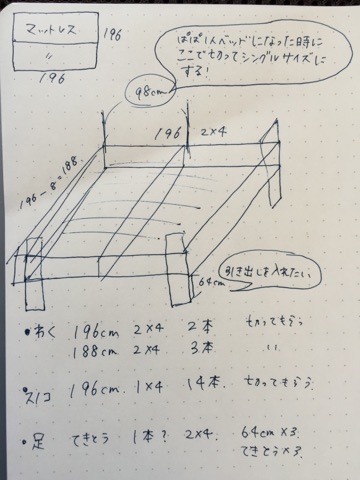 マットレス
〃
196
196
ぱぱ1人ベッドになった時に
ここで切ってシングルサイズに
する!
98cm
196 2×4
196-8=188.
引き出しを入れたい。
64cm
・わく 196cm 2×4 2本 切ってもらう
188cm 2×4 3本 〃
・スノコ 196cm. 1×4 14本. 切ってもらう.
・足 てきとう 1本? 2×4. 64cm×3.
てきとう×3.